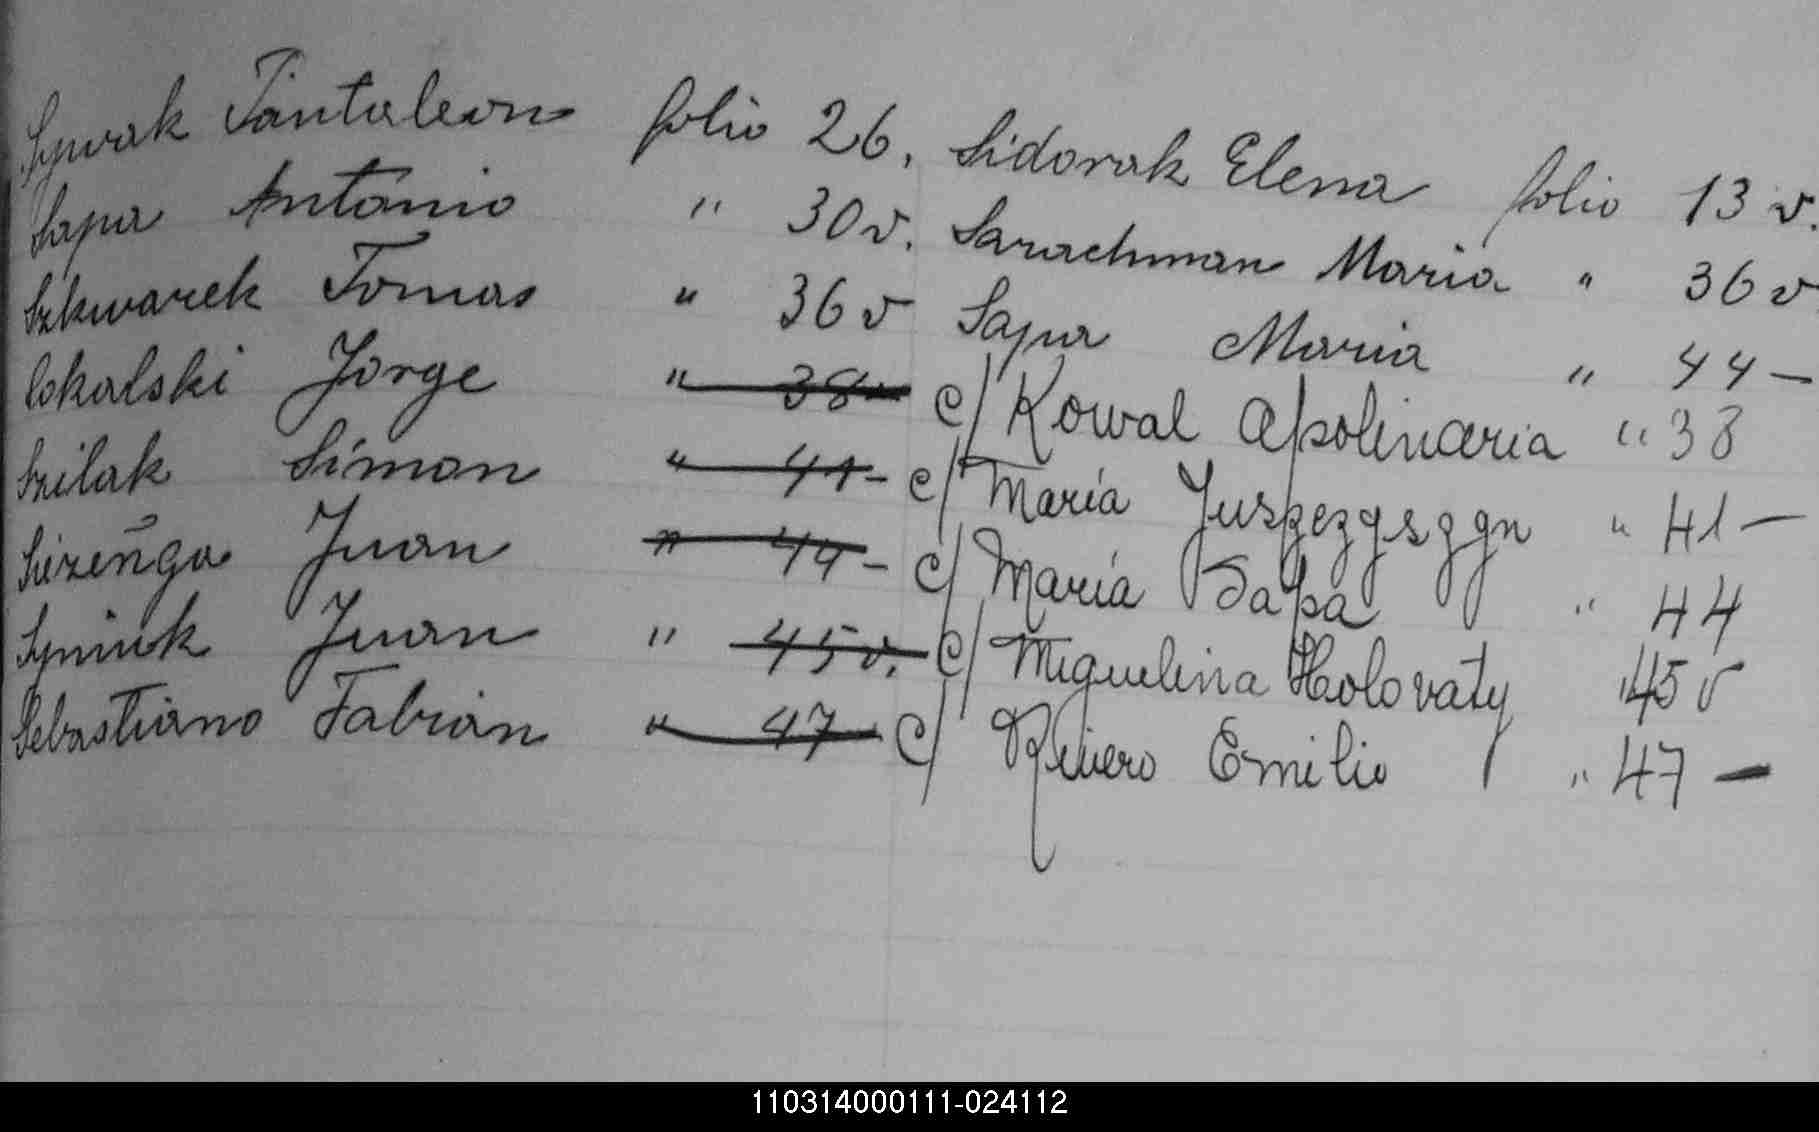 Sywak Pantaleon folio 26. Sidorak Elena folio 13 v.
Sapa Antonio " 30 v. Sarachman Maria " 36 v
Szkwarek Tomas " 36 v Sapa Maria " 44 -
Sokalski Jorge " 38 v c/ Kowal Apolinaria " 38
Szilak Simon " 41 - c/ Maria " 41 -
Siezeñga Juan " 44 - c/ Maria Sapa " 44
Juan " 45 v. c/ Miguelina Holovaty " 45 v
Sebastiano Fabian " 47 c/ Rivero Emilio " 47 -
110314000111-024112